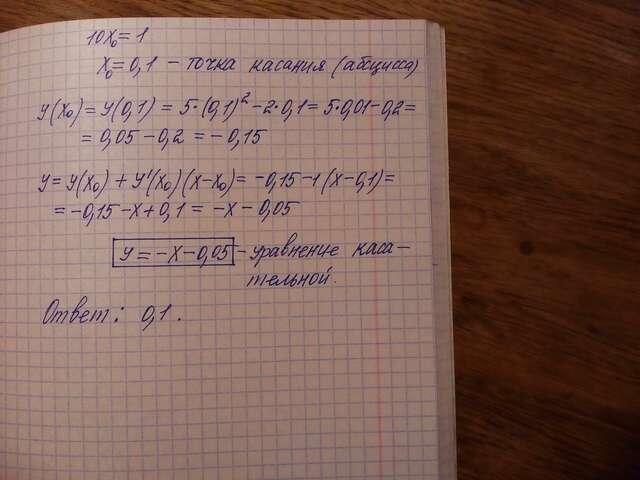 10x₀ = 1
x₀ = 0,1 – точка касания (абсцисса)
y(x₀) = y(0,1) = 5·(0,1)² – 2·0,1 = 5·0,01 – 0,2 =
= 0,05 – 0,2 = – 0,15
y = y(x₀) + y'(x₀)(x – x₀) = –0,15 – 1(x – 0,1) =
= –0,15 – x + 0,1 = –x – 0,05
y = –x – 0,05 – уравнение каса–
тельной.
Ответ: 0,1.